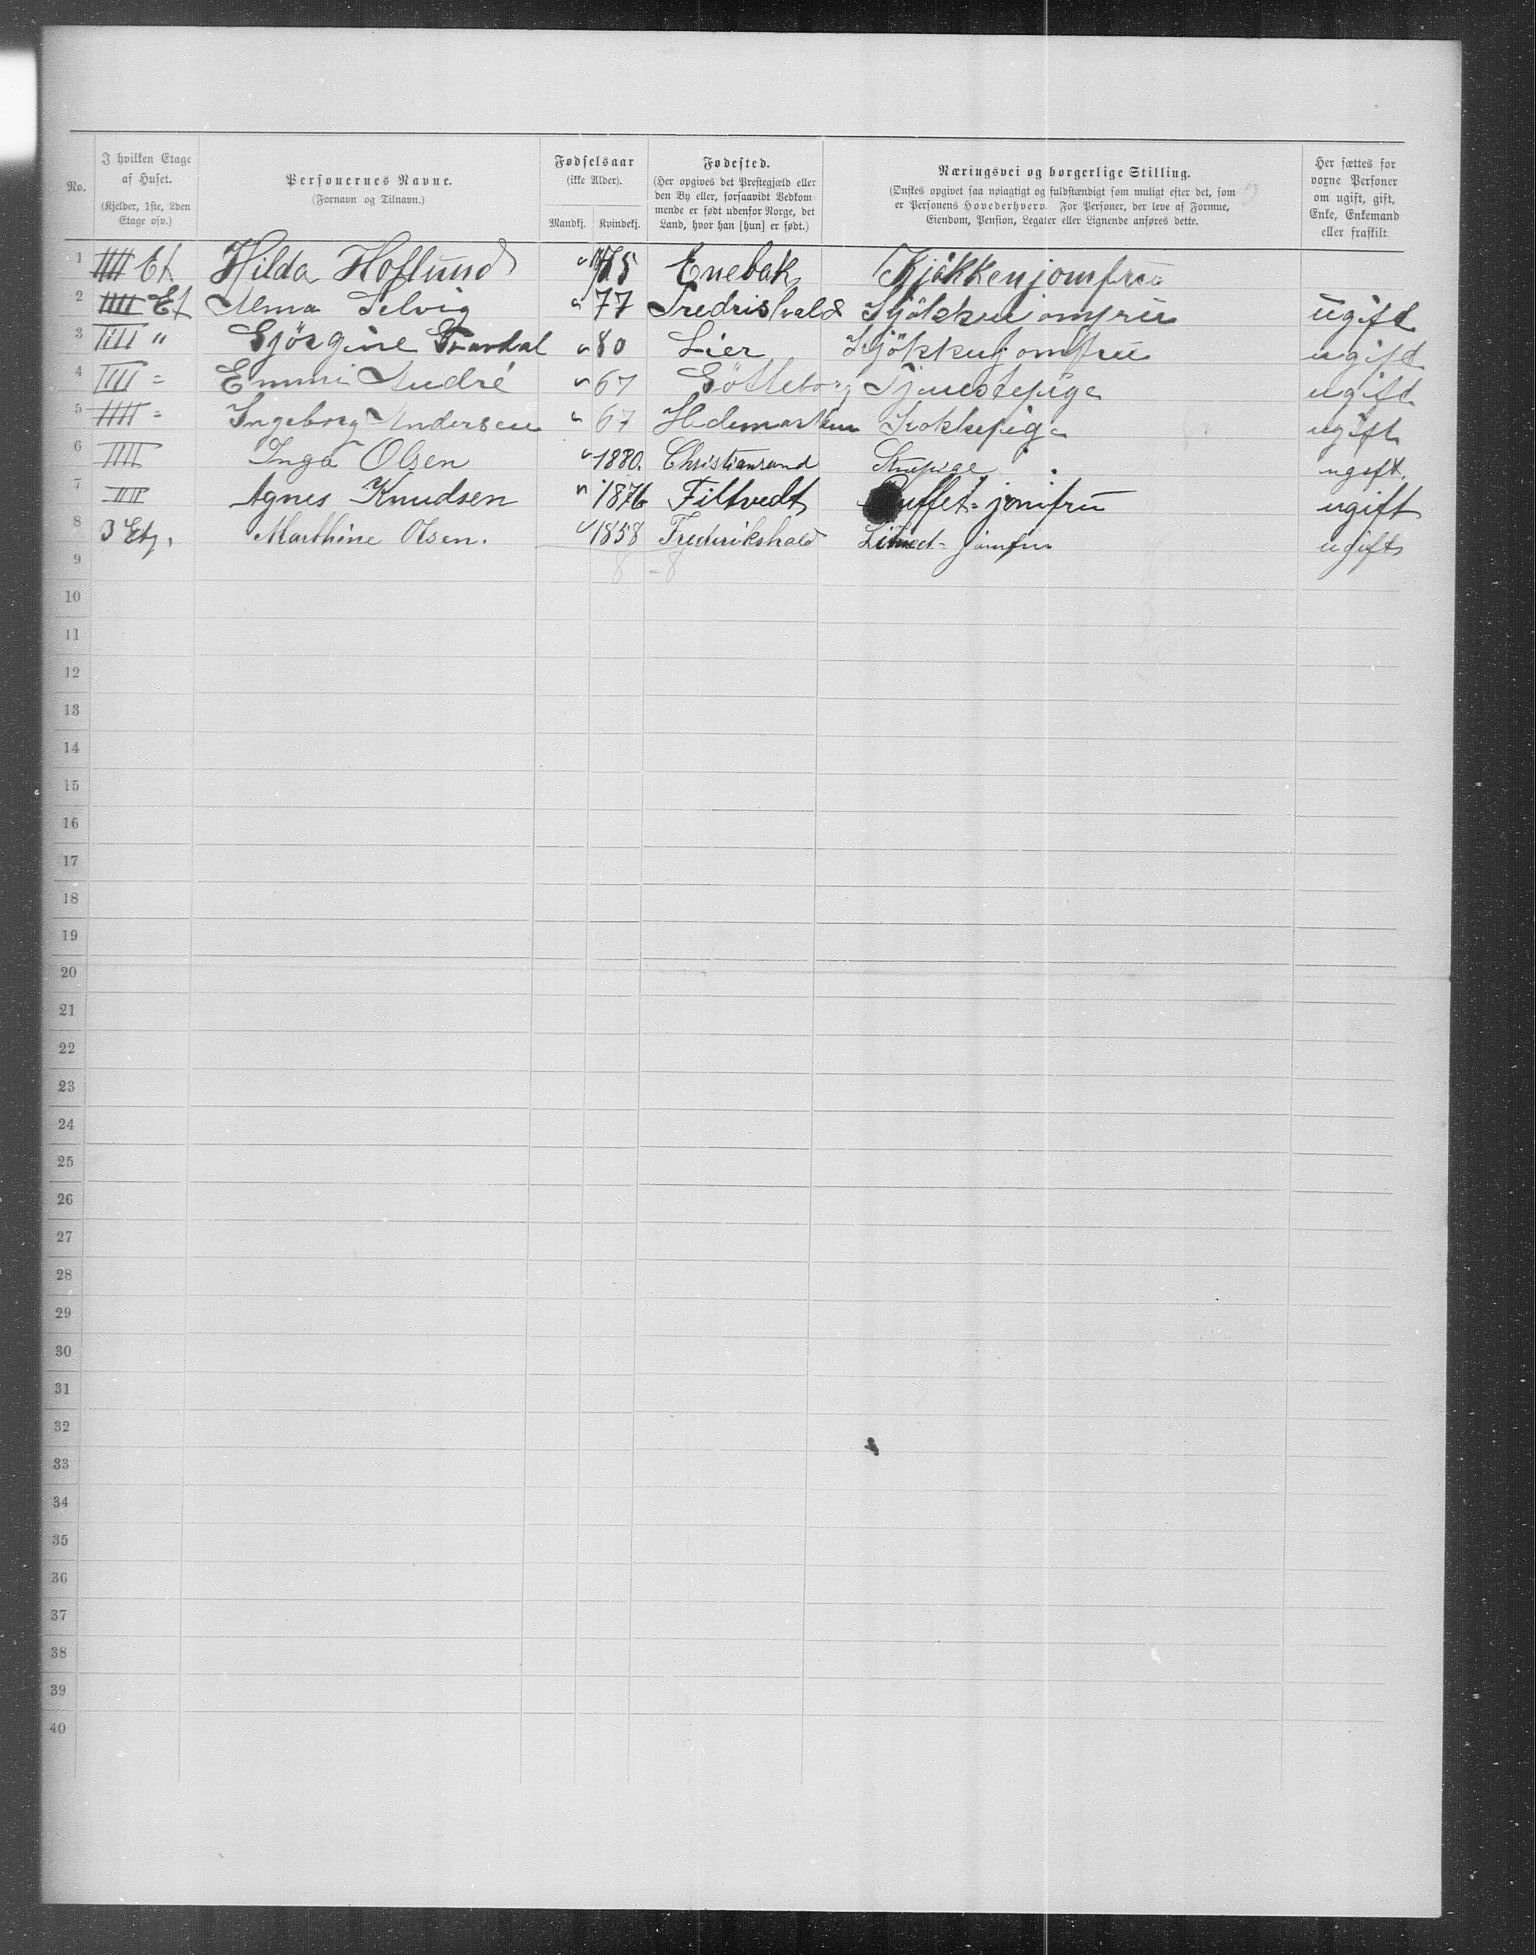 No.
I hvilken Etage af Huset.
(Kjelder, 1ste, 2den Etage osv.)
Personernes Navne.
(Fornavn og Tilnavn.)
Fødselsaar
(ikke Alder).
Mandkj. Kvindekj.
Fødested.
(Her opgives det Prestegjæld eller
den By eller, forsaavidt Vedkom-
mende er født udenfor Norge, det
Land, hvor han [hun] er født.)
Næringsvei og borgerlige Stilling.
(Ønskes opgivet saa nøiagtigt og fuldstændigt som muligt efter det, som
er Personens Hovederhverv. For Personer, der leve af Formue,
Eiendom, Pension, Legater eller Lignende anføres dette.
Her sættes for
voxne Personer
om ugift, gift,
Enke, Enkemand
eller fraskilt.
1 IIII Et Hilda Hoflund 75 Enebak Kjøkkenjomfru
2 IIII Et Selvig 77 Fredrishald Kjökkenjomfru ugift
3 IIII " Gjörgine 80 Lier Kjökkenjomfru ugift
4 IIII = Emmi André 67 Götteborg Tjenestepige ugift
5 IIII = Ingeborg Andersen 67 Hedemarken Kokkepige ugift
6 IIII Inga Olsen 1880. Christiansand Stupige ugift.
7 III Agnes Knudsen 1876 Filtvedt Buffet-jomfru ugift
8 3 Etg. Marthine Olsen. 1858 Frederikshald jomfru ugift
9 8 - 8
10
11
12
13
14
15
16
17
18
19
20
21
22
23
24
25
26
27
28
29
30
31
32
33
34
35
36
37
38
39
40